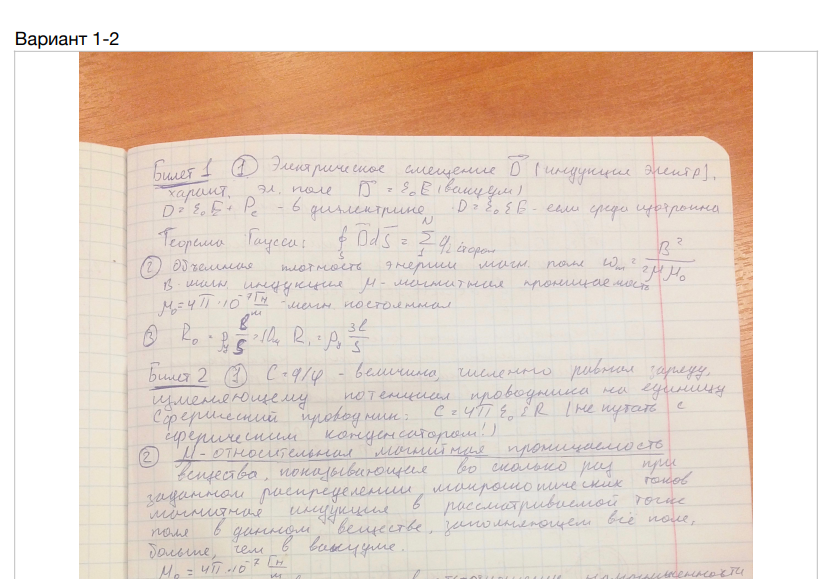 Вариант 1-2
Билет 1 ① Электрическое смещение D⃗ (индукция электр),
характ. эл. поле D⃗ = ε₀E (вакуум)
D = ε₀E + Pe - в диэлектрике D = ε₀εE - если среда изотропна
Теорема Гаусса: ∮ D⃗dS⃗ = Σ qi сторон
② Объемная плотность энергии магн. поля ωm = B²/2μμ₀
B - магн. индукция μ - магнитная проницаемость
μ₀ = 4π·10⁻⁷ Гн/м - магн. постоянная
③ R₀ = ρ l/S = 1Ω R₁ = ρ 3l/S
Билет 2 ① C = q/φ - величина, численно равная заряду,
изменяющему потенциал проводника на единицу
Сферический проводник: C = 4πε₀εR (не путать с
сферическим конденсатором!)
② μ - относительная магнитная проницаемость
вещества, показывающая во сколько раз при
заданном распределении макроскопических токов
магнитная индукция в рассматриваемой точке
поля в данном веществе, заполняющем всё поле,
больше, чем в вакууме.
μ₀ = 4π·10⁻⁷ Гн/м